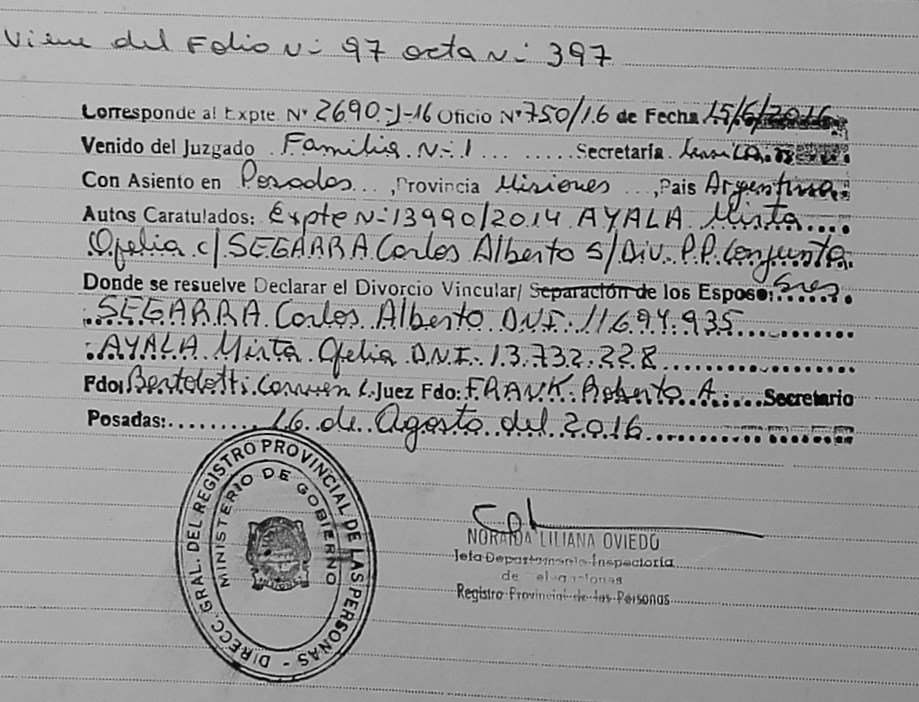 Viene del Folio N: 97 acta N: 397
Corresponde al Expte N° 2690-J-16 Oficio N° 750/16 de Fecha 15/6/2016
Venido del Juzgado Familia N: 1 Secretaria
Con Asiento en Posadas, Provincia Misiones, Pais Argentina
Autos Caratulados: Expte N: 13990/2014 AYALA Mirta
Ofelia c/ SEGARRA Carlos Alberto S/ Div. P.P. Conjunta
Donde se resuelve Declarar el Divorcio Vincular/ Separación de los Esposo: Sres
SEGARRA Carlos Alberto D.N.I. 11.694.935
AYALA Mirta Ofelia D.N.I. 13.732.228
Fdo: Bertolotti Carmen L. Juez Fdo: FRANK Roberto A. Secretario
Posadas: 16 de Agosto del 2016
DIRECC. GRAL. DEL REGISTRO PROVINCIAL DE LAS PERSONAS
MINISTERIO DE GOBIERNO
NORAIDA LILIANA OVIEDO
Jefa Departamento Inspectoria
Registro Provincial de las Personas